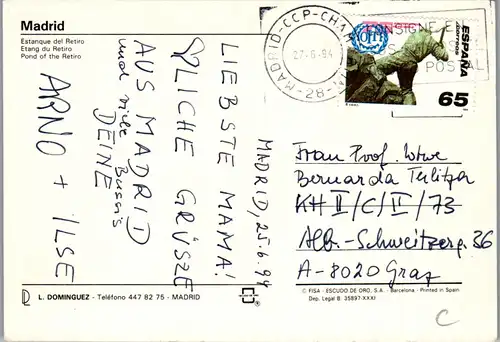 Madrid
Estanque del Retiro
Etang du Retiro
Pond of the Retiro
MADRID, 25.6.94
LIEBSTE MAMA!
GRÜSZE
AUS MADRID
und viele Bussis
DEINE
ARNO + ILSE
L. DOMINGUEZ - Teléfono 447 82 75 - MADRID
MADRID-CCP-CHA
27-6-94
-28-
CONSIGNE E
POSTAL
OIT
ESPAÑA
CORREOS
65
Frau Prof.
Bernarda Terlitza
KH II/C/II/73
Alb.-Schweitzerg. 36
A-8020 Graz
© FISA - ESCUDO DE ORO, S.A. - Barcelona - Printed in Spain
Dep. Legal B. 35897-XXXI
C